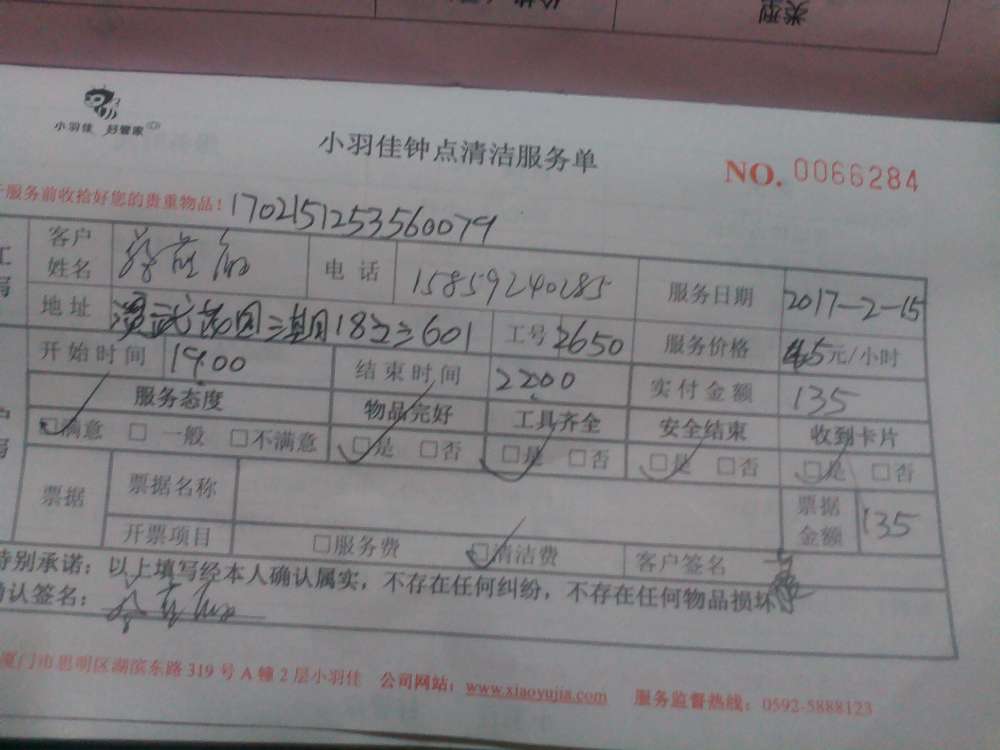 类型
小羽佳 好管家
小羽佳钟点清洁服务单
NO. 0066284
服务前收拾好您的贵重物品！
1702151253560079
客户姓名 电话 15859240285 服务日期 2017-2-15
地址 演武花园二期18之三601 工号 2650 服务价格 45元/小时
开始时间 19:00 结束时间 22:00 实付金额 135
服务态度 物品完好 工具齐全 安全结束 收到卡片
□满意 □一般 □不满意 □是 □否 □是 □否 □是 □否 □是 □否
票据 票据名称 票据金额 135
开票项目 □服务费 □清洁费 客户签名
特别承诺：以上填写经本人确认属实，不存在任何纠纷，不存在任何物品损坏
确认签名：
厦门市思明区湖滨东路319号A幢2层小羽佳 公司网站：www.xiaoyujia.com 服务监督热线：0592-5888123